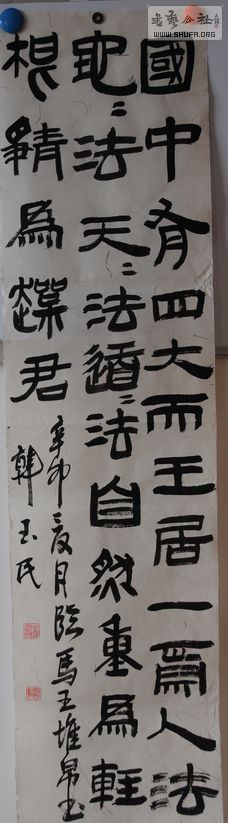 書藝公社
WWW.SHUFA.ORG
國中有四大而王居一焉人法
地〻法天〻法道〻法自然重為輕
根靜為趮君
辛卯夏月臨馬王堆帛書
韓玉民